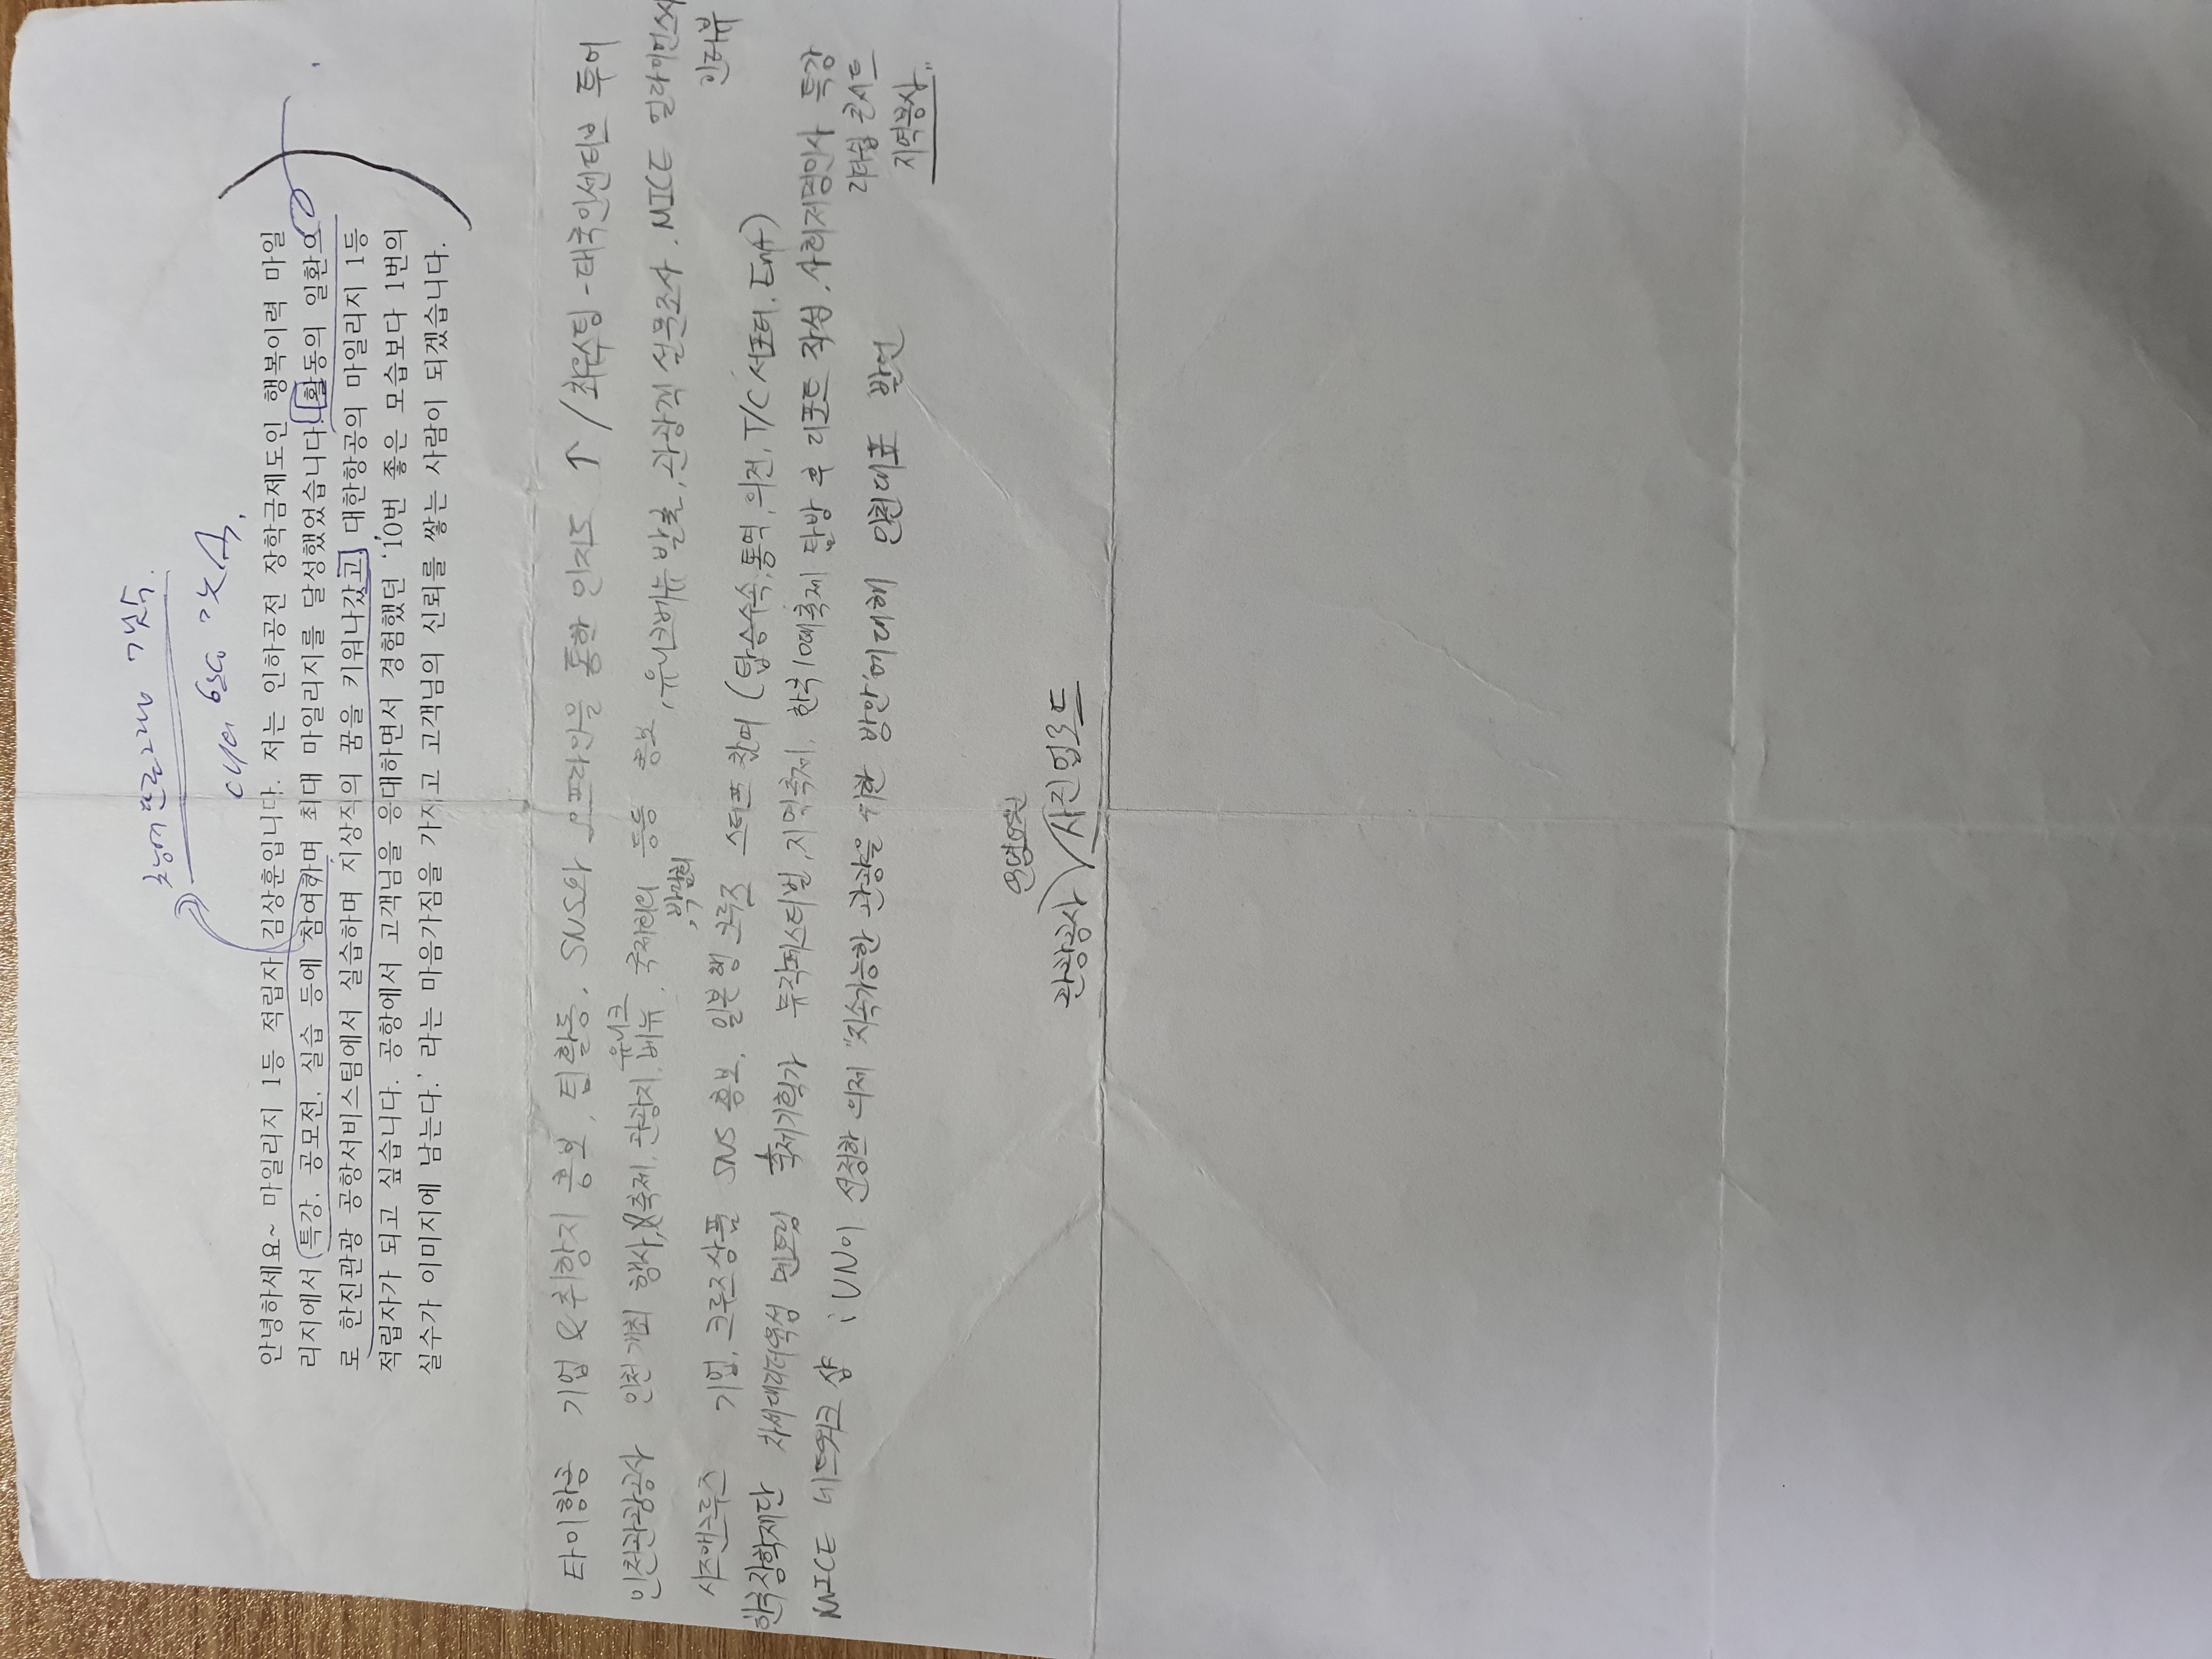 참여프로그램 갯수.
대외활동 갯수.
안녕하세요~ 마일리지 1등 적립자 김상훈입니다. 저는 인하공전 장학금제도인 행복이력 마일
리지에서 특강, 공모전, 실습 등에 참여하며 최대 마일리지를 달성했었습니다. 활동의 일환으
로 한진관광 공항서비스팀에서 실습하며 지상직의 꿈을 키워나갔고, 대한항공의 마일리지 1등
적립자가 되고 싶습니다. 공항에서 고객님을 응대하면서 경험했던 ‘10번 좋은 모습보다 1번의
실수가 이미지에 남는다.’ 라는 마음가짐을 가지고 고객님의 신뢰를 쌓는 사람이 되겠습니다.
타이항공 기업 & 취항지 홍보, 팀활동, SNS와 오프라인을 통한 인지도 ↑ / 최우수팀 - 태국인센티브 투어
유니크
인천관광공사 인천 개최 행사, 축제, 관광지, 베뉴, 국제회의 등등 홍보, 유니크베뉴 발굴, 관광객 설문조사, MICE 얼라이언스사
, 박람회
인터뷰
시즈앤크루즈 기업, 크루즈상품 SNS 홍보, 일본행 크루즈 스태프 참여 (탑승수속, 통역, 의전, T/C 서포터, Ent)
한국장학재단 차세대리더육성 멘토링 축제기획가 뮤직페스티벌, 지역축제, 한국10대축제 탐방 후 리포트 작성, 사회저명인사 특강
리더쉽 콘서트
지역봉사
MICE 네트워크 샵 ; UN이 선정한 의제 "지속가능한 관광을 위한 방안"에 대해 인천대표 발언
운영요원
관광공사 사진업로드